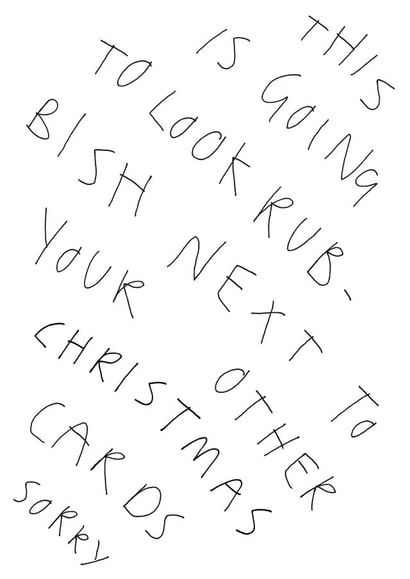 THIS
IS GOING
TO LOOK RUB-
BISH NEXT TO
YOUR OTHER
CHRISTMAS
CARDS
SORRY